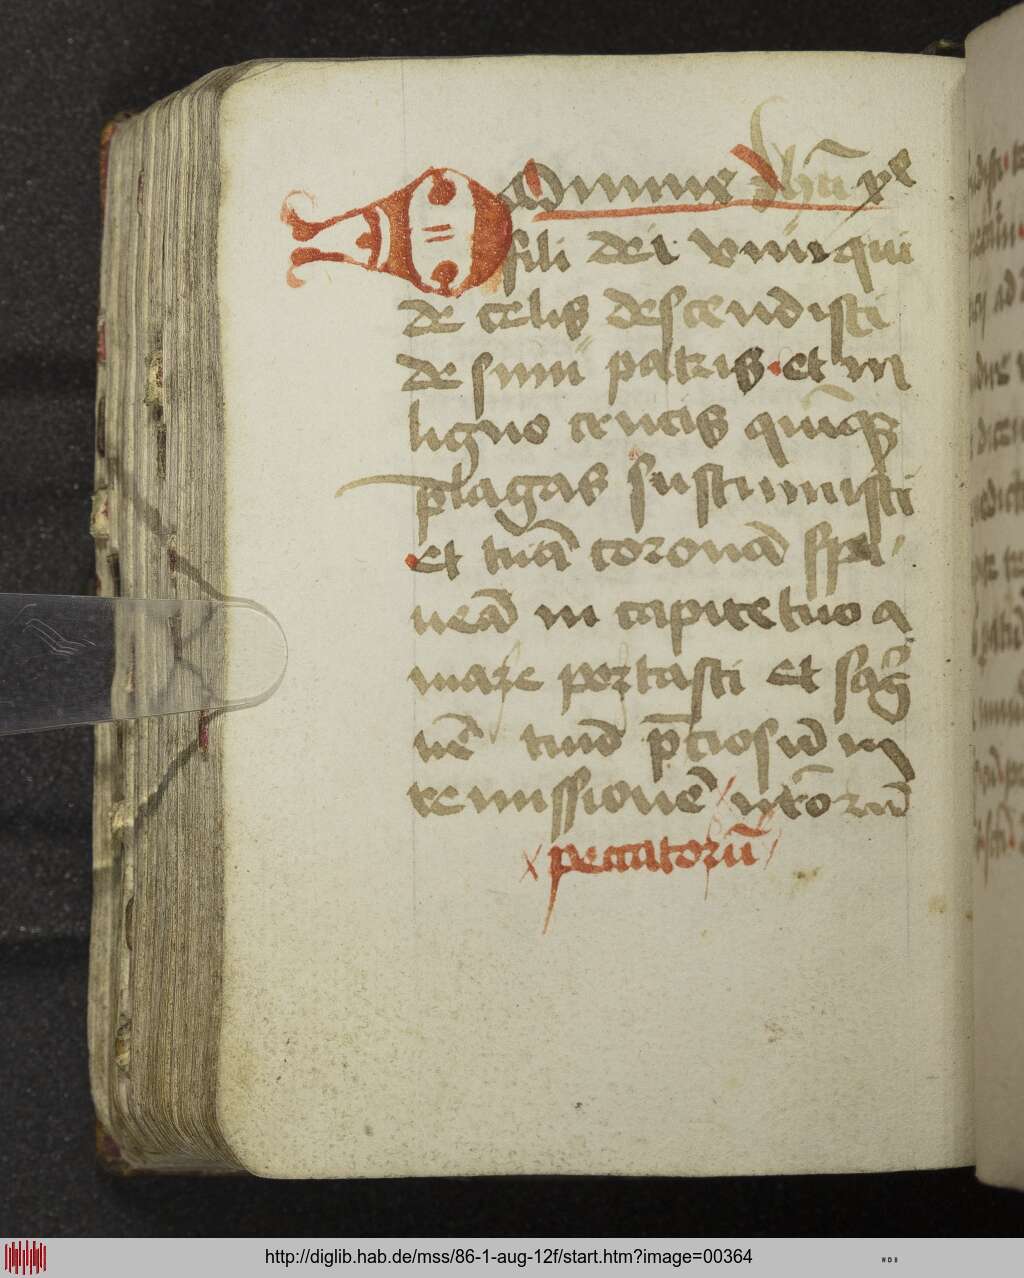 Domine Jhũ xpe
fili dei viui qui
de celis descendisti
de sinu patris · et in
ligno crucis quīqȝ
plagas sustinuisti
et tuā coronā spi
neā in capite tuo a
mare portasti et sāg
nē tuū p̄ciosū in
remissionē nr̄orū
peccatorū
http://diglib.hab.de/mss/86-1-aug-12f/start.htm?image=00364